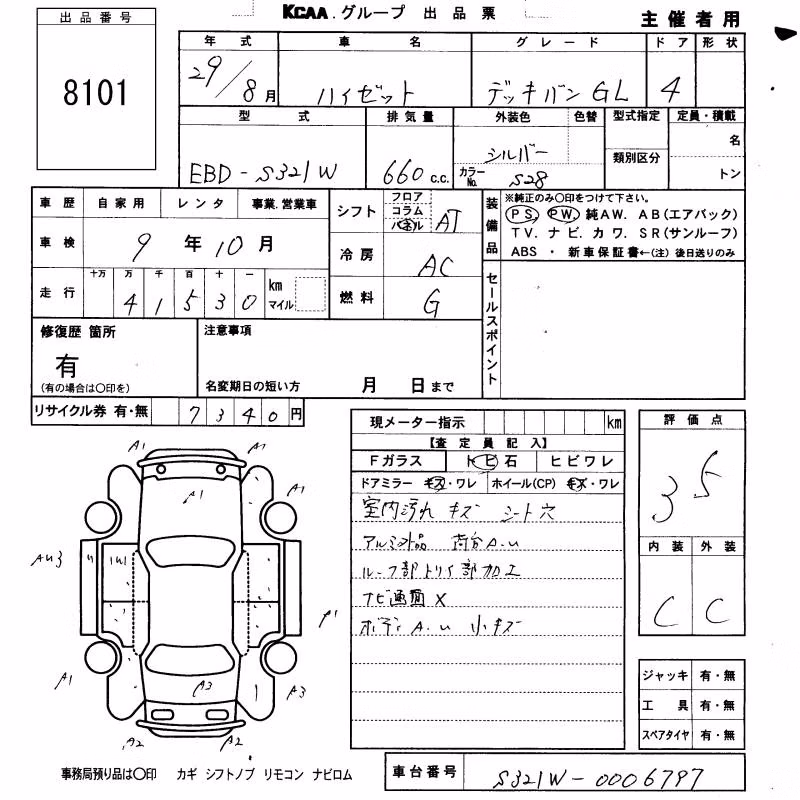 KCAA.グループ 出品票
主催者用
出品番号
8101
年式 車名 グレード ドア 形状
29/8月 ハイゼット デッキバンGL 4
型式 排気量 外装色 色替 型式指定 定員・積載
EBD-S321W 660c.c. シルバー 名
カラーNo. S28 類別区分 トン
車歴 自家用 レンタ 事業.営業車
車検 9年10月
走行 十万 万 千 百 十 一 km マイル
4 1 5 3 0
シフト フロア コラム パネル AT
冷房 AC
燃料 G
装備品 ※純正のみ〇印をつけて下さい。
PS. PW. 純AW. AB(エアバック)
TV. ナビ. カワ. SR(サンルーフ)
ABS ・ 新車保証書←(注) 後日送りのみ
セールスポイント
修復歴 箇所
有
(有の場合は〇印を)
注意事項
名変期日の短い方 月 日まで
リサイクル券 有・無 7340円
現メーター指示 km
【査定員記入】
Fガラス トビ石 ヒビワレ
ドアミラー キズ・ワレ ホイール(CP) キズ・ワレ
室内汚れ キズ シート穴
アルミ外品 荷台A.u
ルーフ部トリイ部加工
ナビ画面X
ボディA.u 小キズ
評価点
3.5
内装 外装
C C
ジャッキ 有・無
工具 有・無
スペアタイヤ 有・無
A1 A1
A1 A1
AU3
A1
A1 A3 A3
A2 A2
事務局預り品は〇印 カギ シフトノブ リモコン ナビロム
車台番号 S321W-0006797